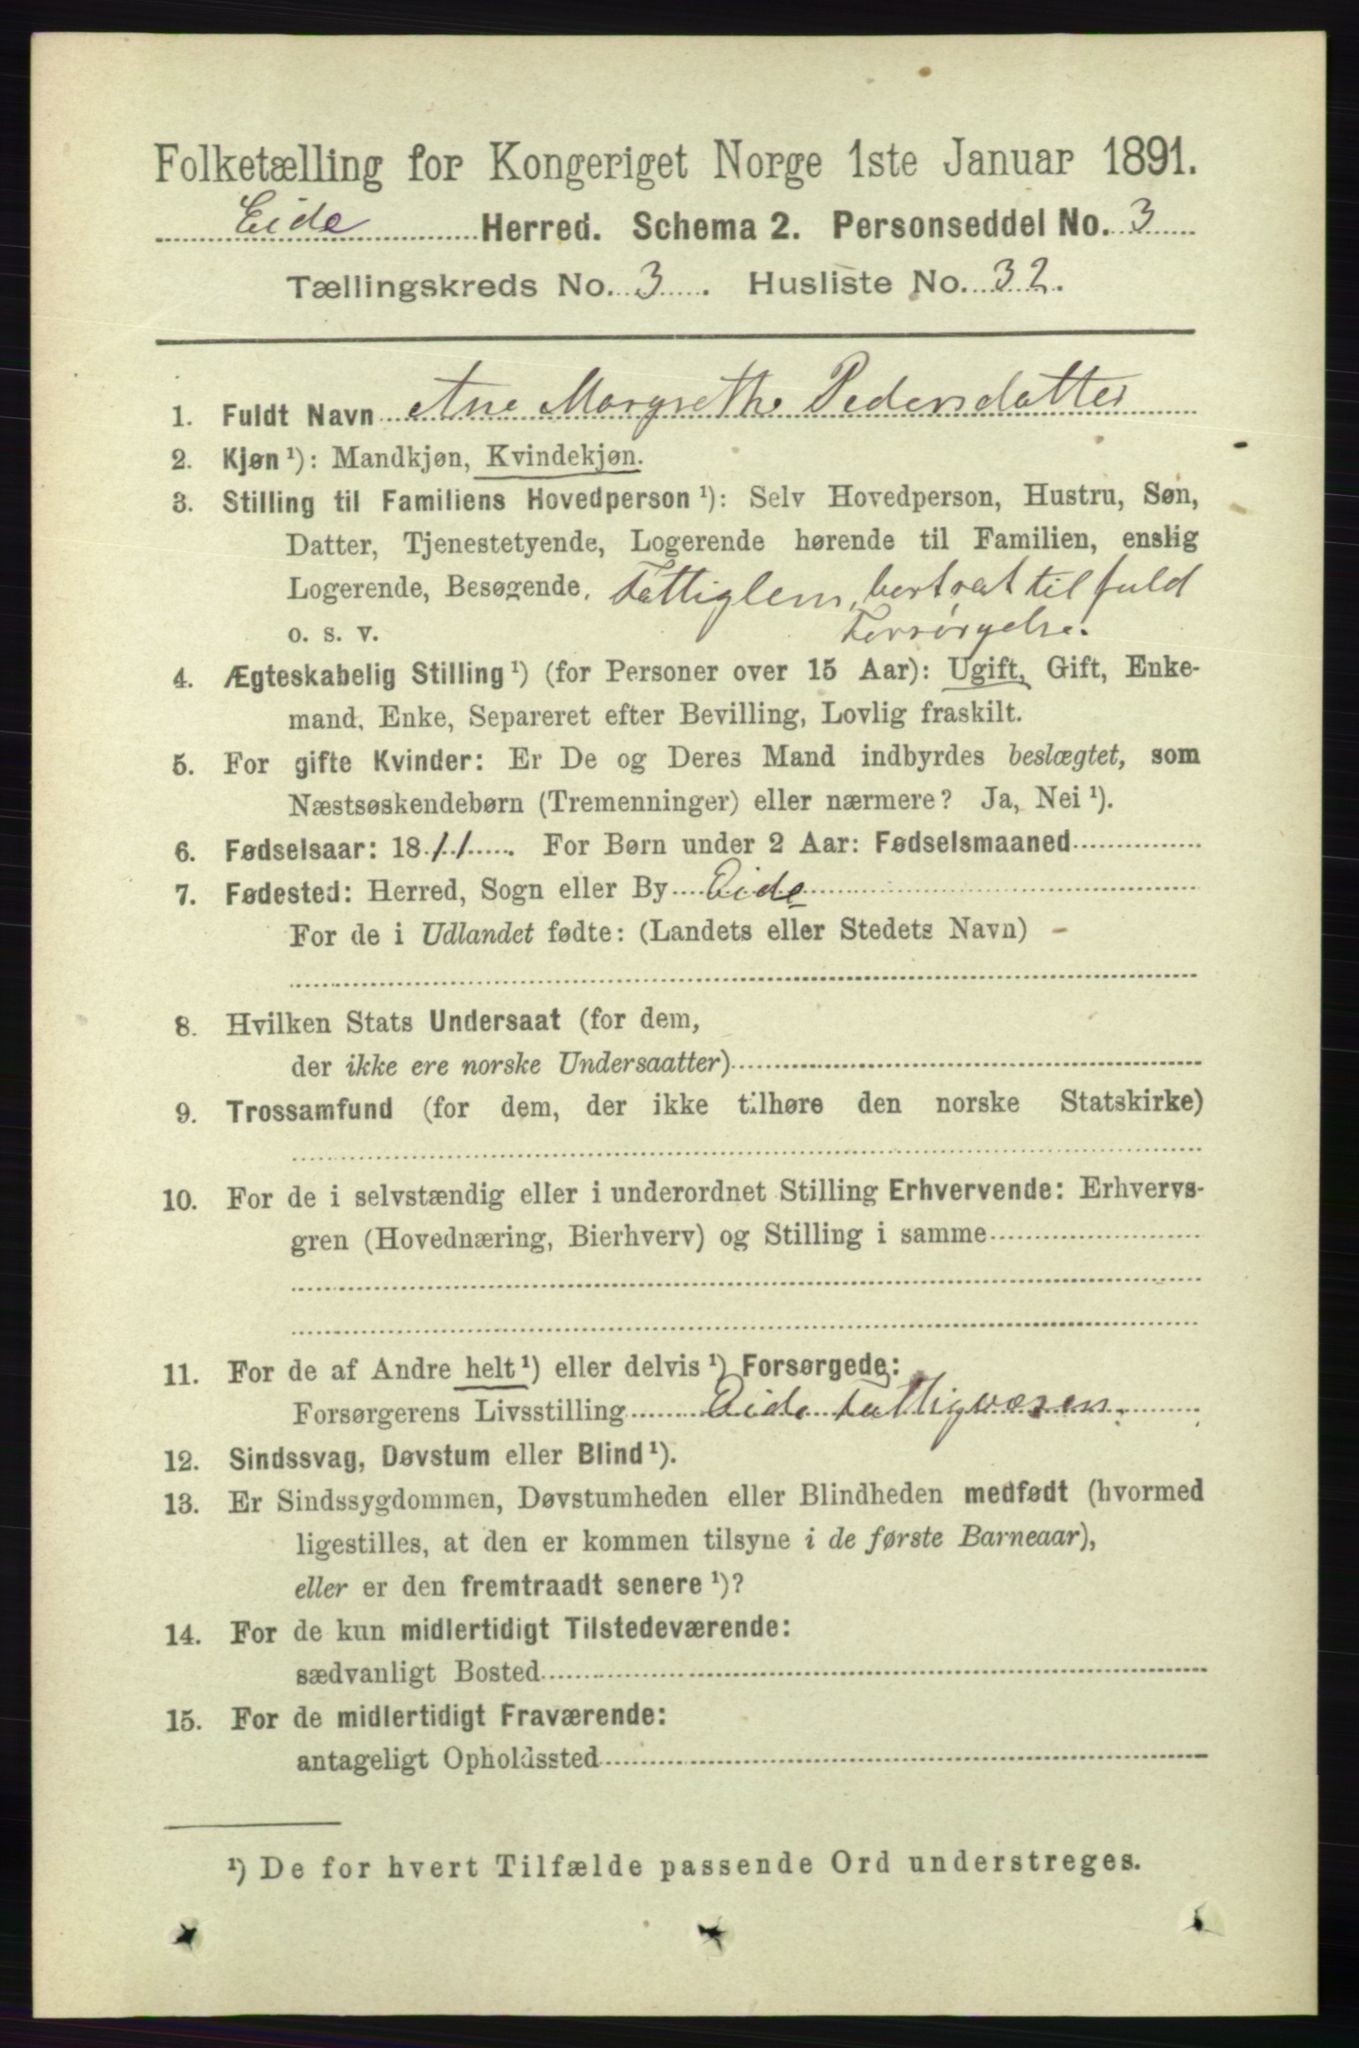 Folketælling for Kongeriget Norge 1ste Januar 1891.
Eide Herred. Schema 2. Personseddel No. 3
Tællingskreds No. 3. Husliste No. 32.
1. Fuldt Navn Ane Margrethe Pedersdatter
2. Kjøn ¹): Mandkjøn, Kvindekjøn.
3. Stilling til Familiens Hovedperson ¹): Selv Hovedperson, Hustru, Søn,
Datter, Tjenestetyende, Logerende hørende til Familien, enslig
Logerende, Besøgende, Fattiglem, bortsat til fuld
o. s. v. Forsørgelse.
4. Ægteskabelig Stilling ¹) (for Personer over 15 Aar): Ugift, Gift, Enke-
mand, Enke, Separeret efter Bevilling, Lovlig fraskilt.
5. For gifte Kvinder: Er De og Deres Mand indbyrdes beslægtet, som
Næstsøskendebørn (Tremenninger) eller nærmere? Ja, Nei ¹).
6. Fødselsaar: 1811. For Børn under 2 Aar: Fødselsmaaned
7. Fødested: Herred, Sogn eller By Eide
For de i Udlandet fødte: (Landets eller Stedets Navn) -
8. Hvilken Stats Undersaat (for dem,
der ikke ere norske Undersaatter)
9. Trossamfund (for dem, der ikke tilhøre den norske Statskirke)
10. For de i selvstændig eller i underordnet Stilling Erhvervende: Erhvervs-
gren (Hovednæring, Bierhverv) og Stilling i samme
11. For de af Andre helt ¹) eller delvis ¹) Forsørgede:
Forsørgerens Livsstilling Eide Fattigvæsen.
12. Sindssvag, Døvstum eller Blind ¹).
13. Er Sindssygdommen, Døvstumheden eller Blindheden medfødt (hvormed
ligestilles, at den er kommen tilsyne i de første Barneaar),
eller er den fremtraadt senere ¹)?
14. For de kun midlertidigt Tilstedeværende:
sædvanligt Bosted
15. For de midlertidigt Fraværende:
antageligt Opholdssted
¹) De for hvert Tilfælde passende Ord understreges.